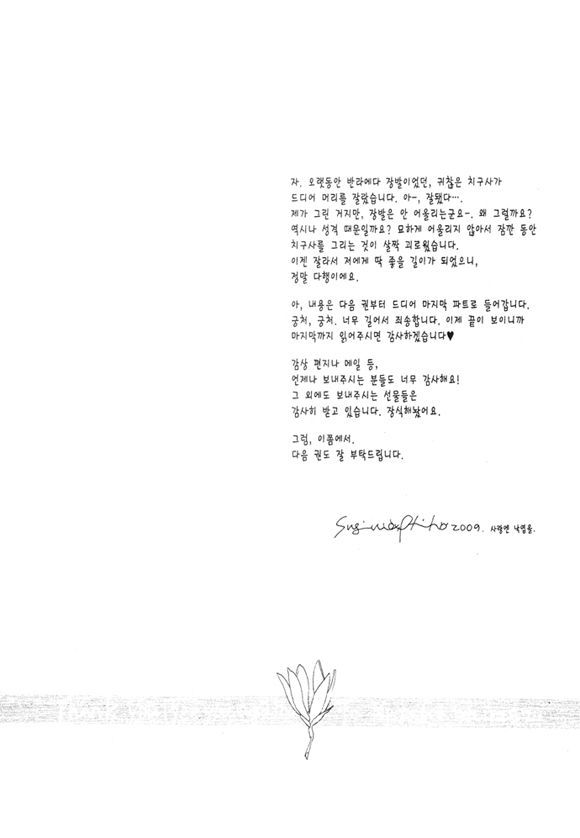 자. 오랫동안 반라에다 장발이었던, 귀찮은 치구사가
드디어 머리를 잘랐습니다. 아-, 잘됐다….
제가 그린 거지만, 장발은 안 어울리는군요-. 왜 그럴까요?
역시나 성격 때문일까요? 묘하게 어울리지 않아서 잠깐 동안
치구사를 그리는 것이 살짝 괴로웠습니다.
이젠 잘라서 저에게 딱 좋을 길이가 되었으니,
정말 다행이에요.
아, 내용은 다음 권부터 드디어 마지막 파트로 들어갑니다.
궁처, 궁처. 너무 길어서 죄송합니다. 이제 끝이 보이니까
마지막까지 읽어주시면 감사하겠습니다♥
감상 편지나 메일 등,
언제나 보내주시는 분들도 너무 감사해요!
그 외에도 보내주시는 선물들은
감사히 받고 있습니다. 장식해놨어요.
그럼, 이쯤에서.
다음 권도 잘 부탁드립니다.
2009.